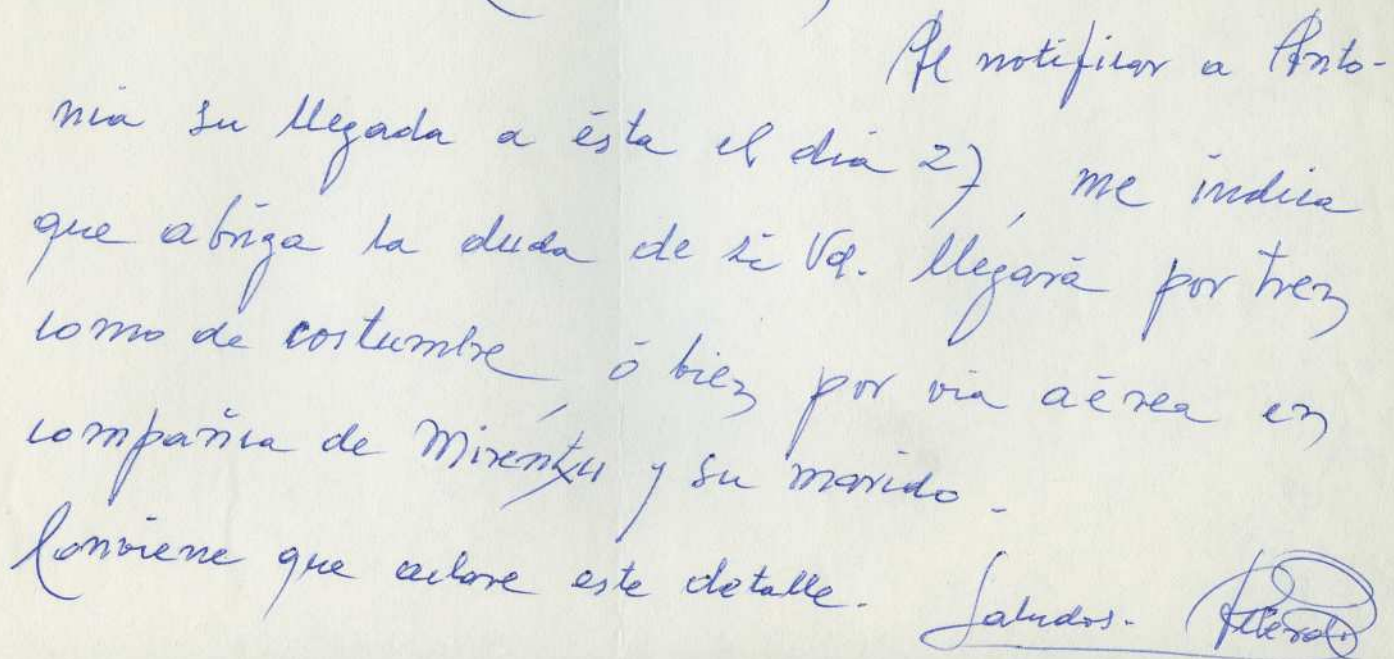 Al notificar a Anto-
nia su llegada a ésta el dia 27, me indica
que abriga la duda de si Vd. llegará por tren
como de costumbre, ó bien por via aérea en
compañia de Mirentxu y su marido.
Conviene que aclare este detalle. Saludos.